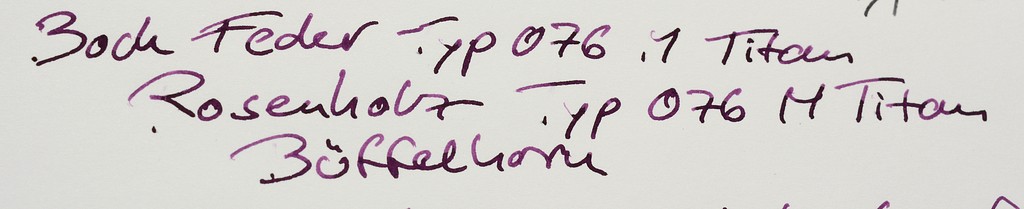 Bock Feder Typ 076 .1 Titan
Rosenholz Typ 076 M Titan
Büffelhorn